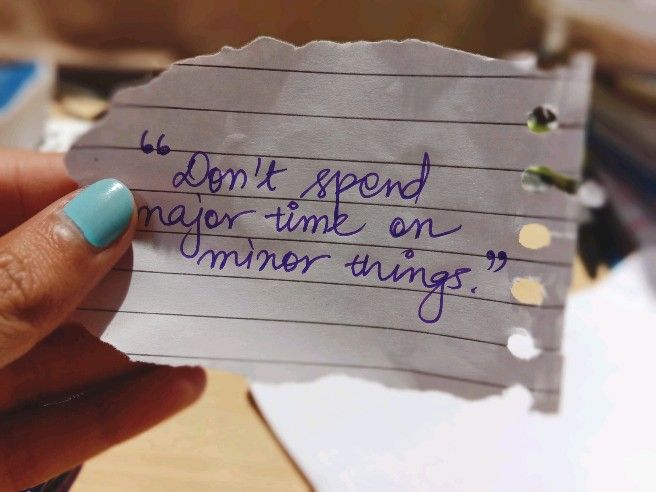 “Don't spend
major time on
minor things.”